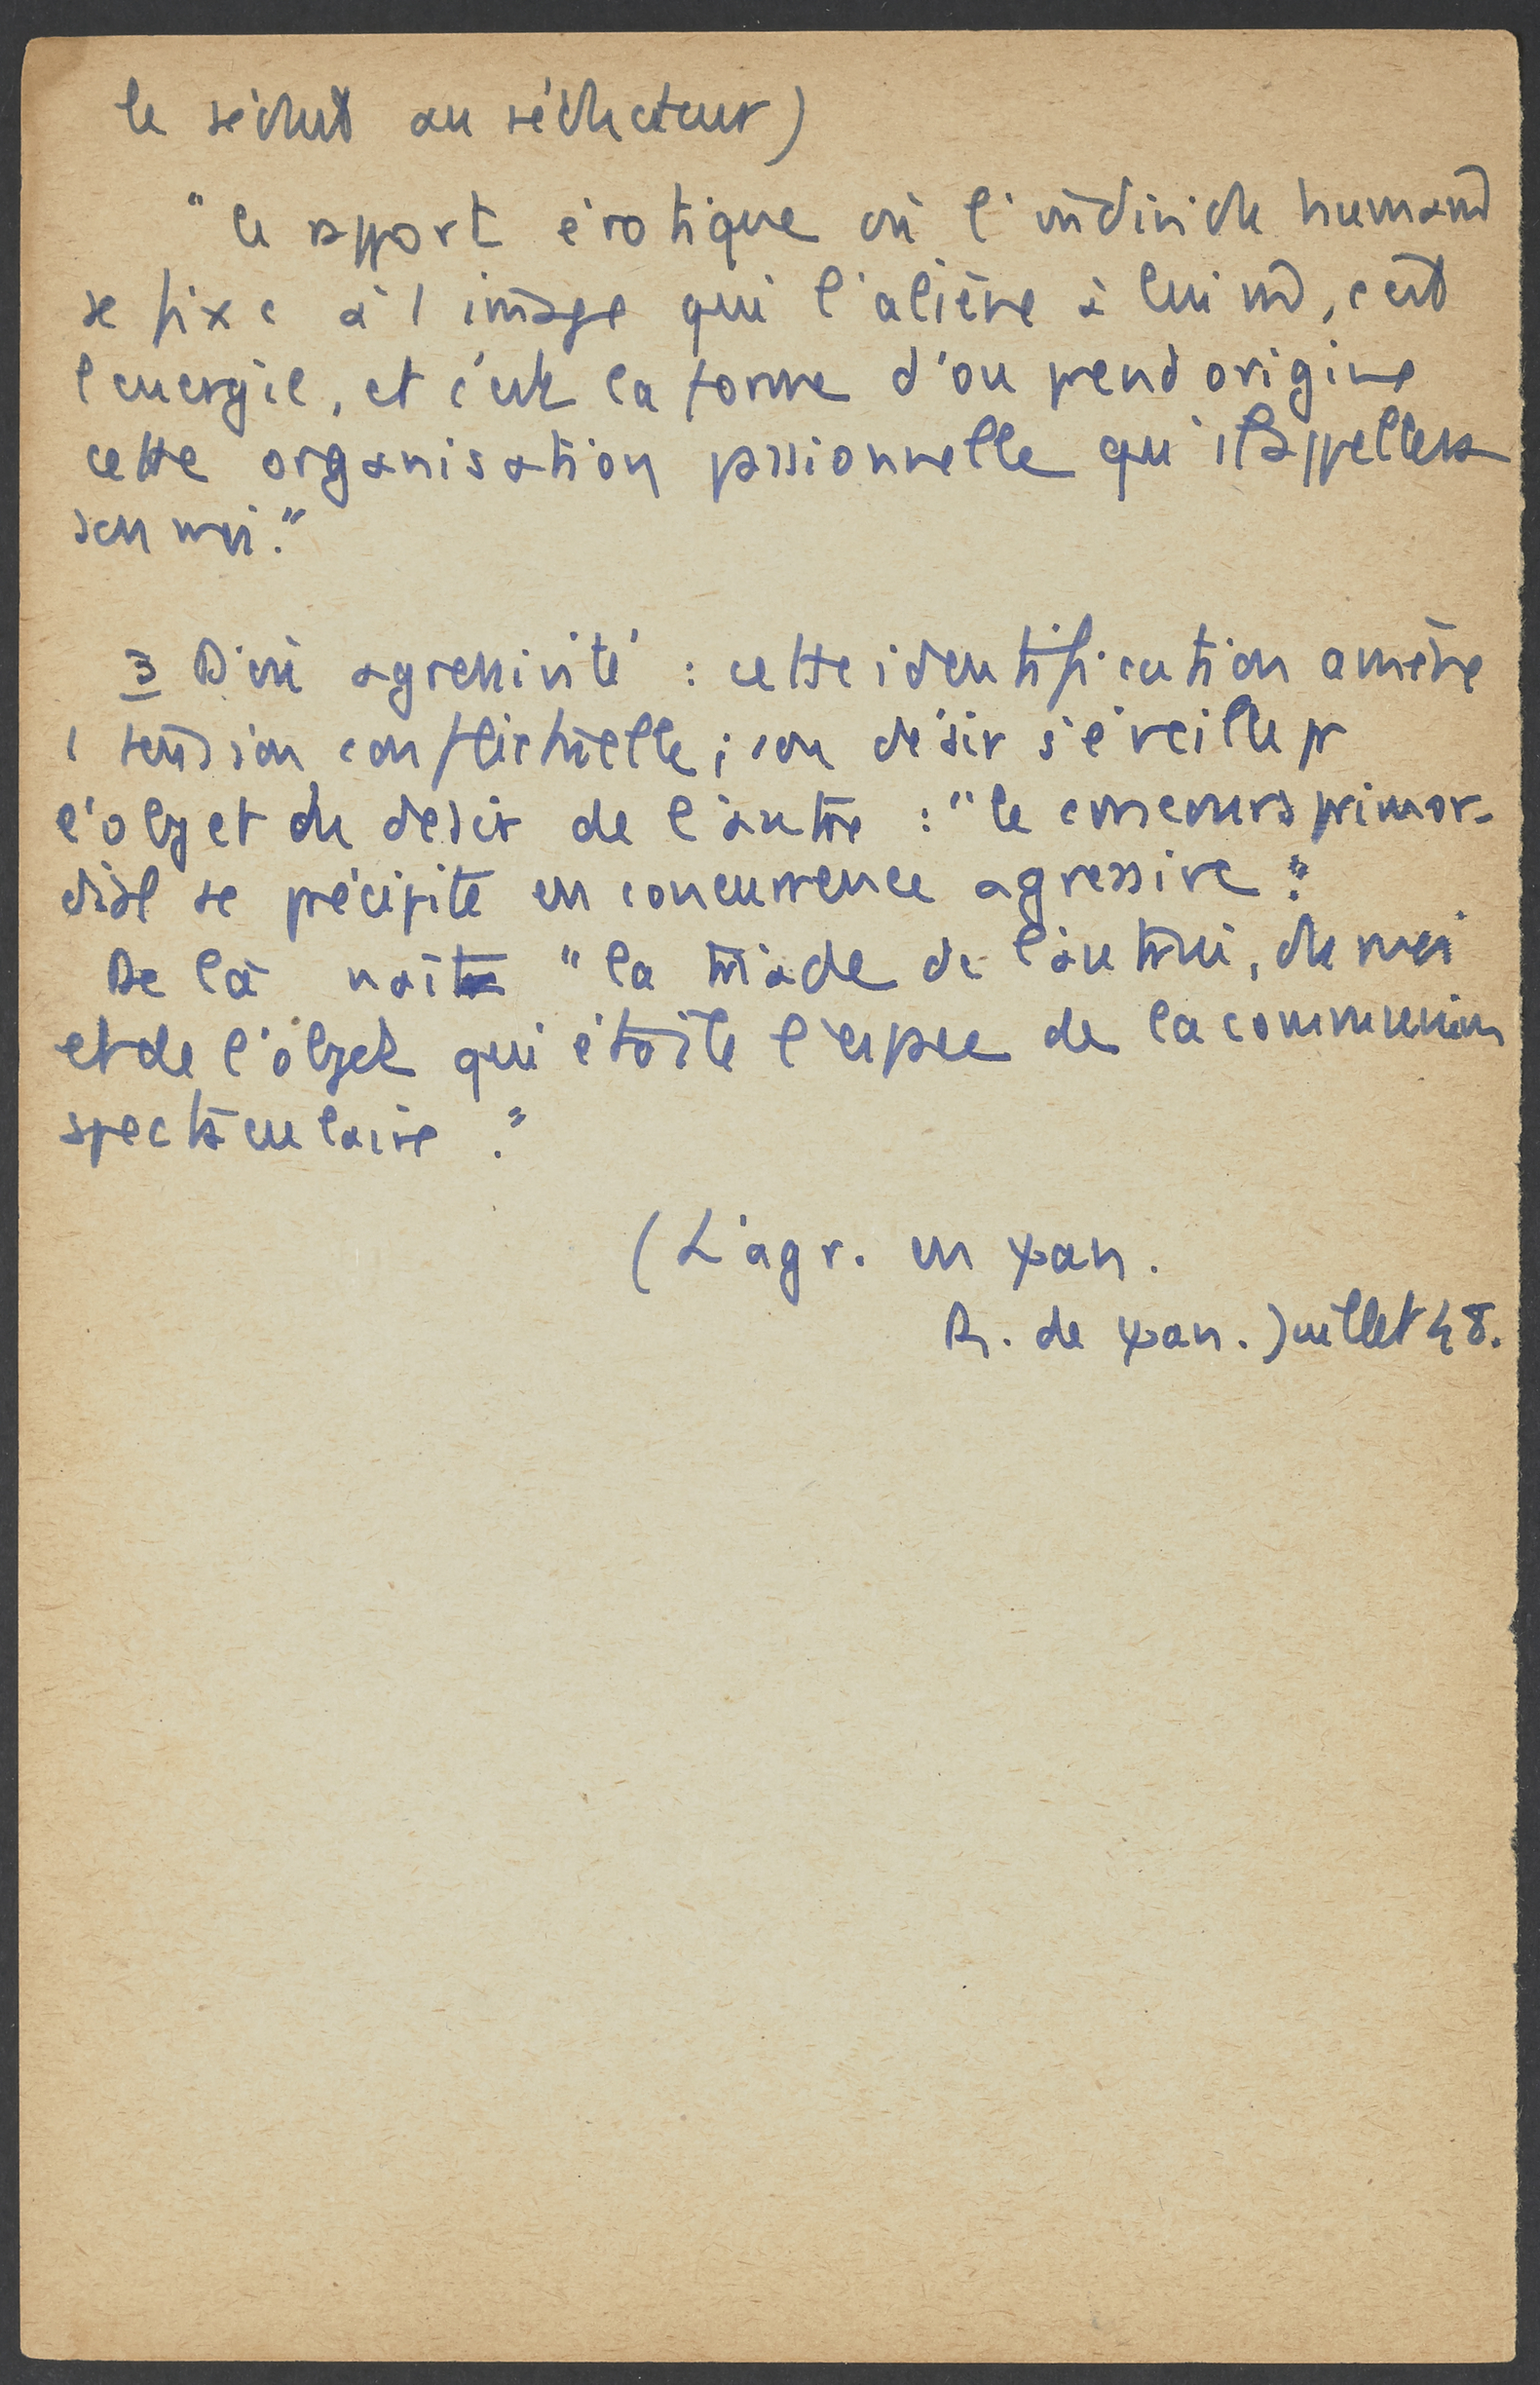 le séduit au séducteur)
"le rapport érotique où l'individu humain
se fixe à 1 image qui l'aliène à lui m̂, c'est
l'energie, et c'est la forme d'ou prend origine
cette organisation passionnelle qu'il appellera
son moi."
3 D'où agressivité : cette identification amène
1 tension conflictuelle ; son désir s'éveille pr
l'objet du désir de l'autre : "le concours primor-
dial se précipite en concurrence agressive."
De là naît "la triade de l'autrui, du moi
et de l'objet qui étoile l'espace de la communion
spectaculaire."
(L'agr. en ψan.
R. de ψan. Juillet 48.